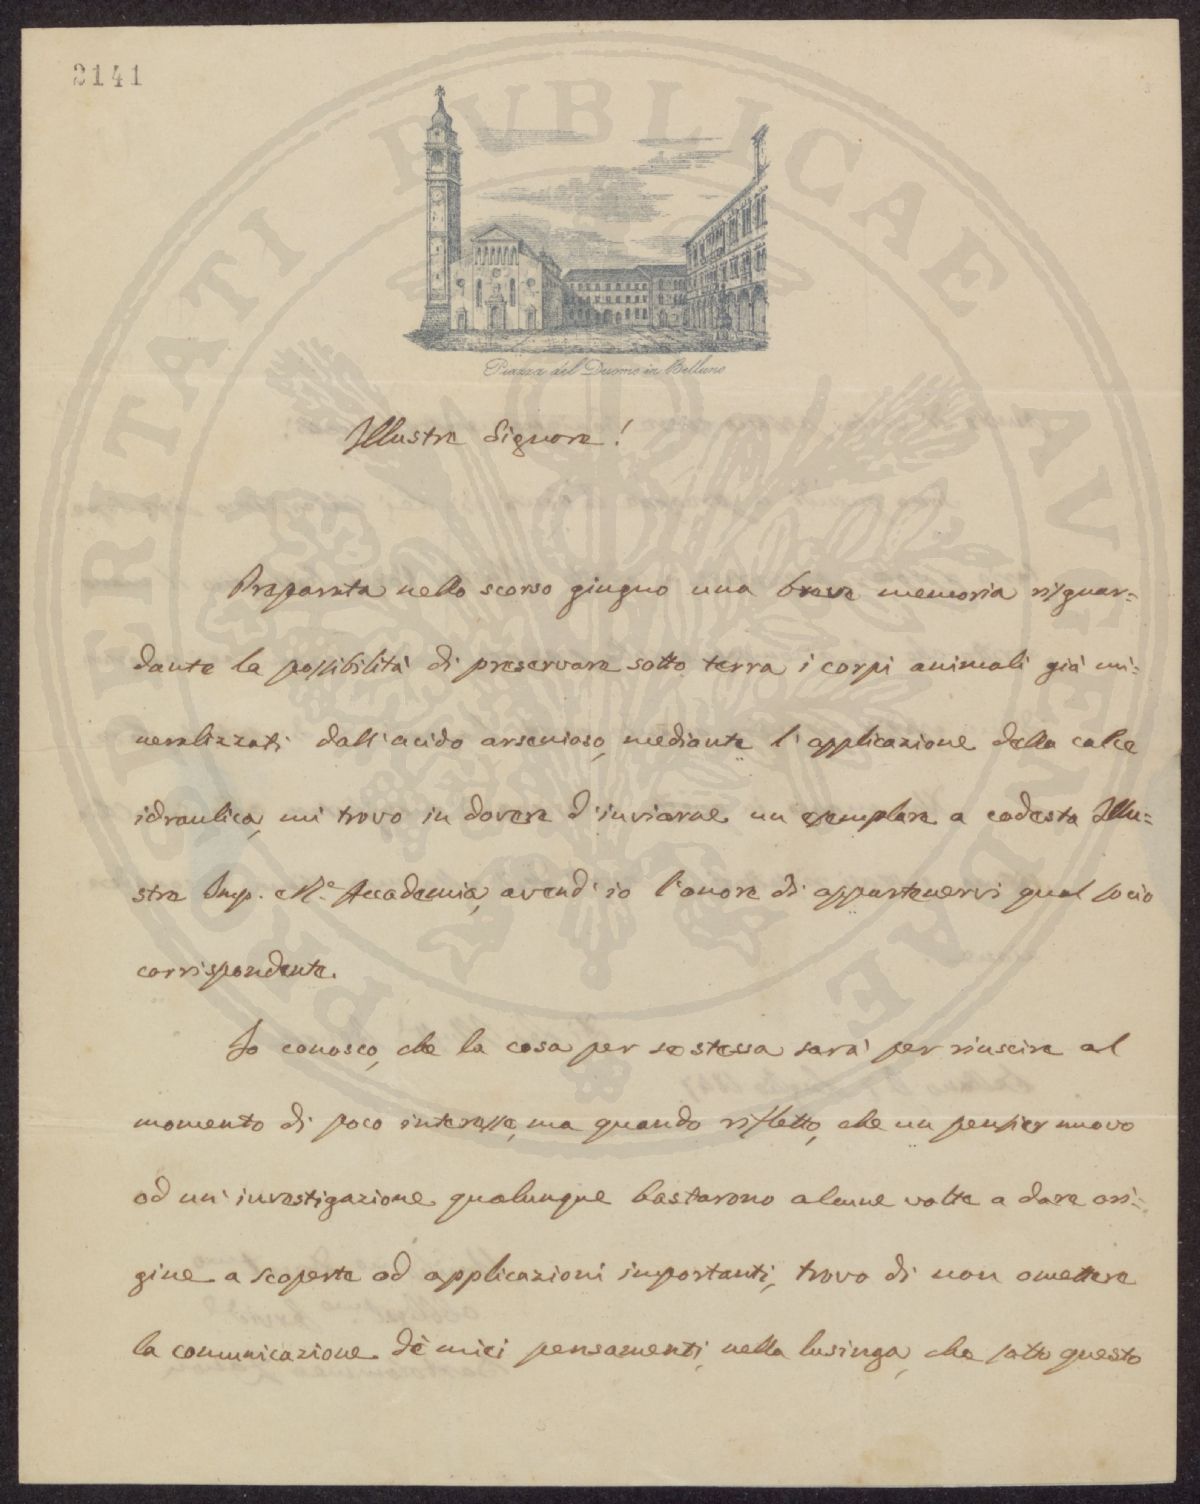 2141
PROSPERITATI PUBLICAE AVGENDAE
Piazza del Duomo in Belluno
Illustre Signore!
Preparata nello scorso giugno una breve memoria risguar=
dante la possibilità di preservare sotto terra i corpi animali già mi=
neralizzati dall'acido arsenioso, mediante l'applicazione della calce
idraulica, mi trovo in dovere d'inviarne un esemplare a codesta Illu=
stre Imp. e R.e Accademia, avend'io l'onore di appartenervi qual socio
corrispondente.
Io conosco, che la cosa per se stessa sarà per riuscire al
momento di poco interesse, ma quando rifletto, che un pensier nuovo
od un'investigazione qualunque bastarono alcune volte a dare ori=
gine a scoperte od applicazioni importanti, trovo di non omettere
la comunicazione de' miei pensamenti, nella lusinga, che sotto questo